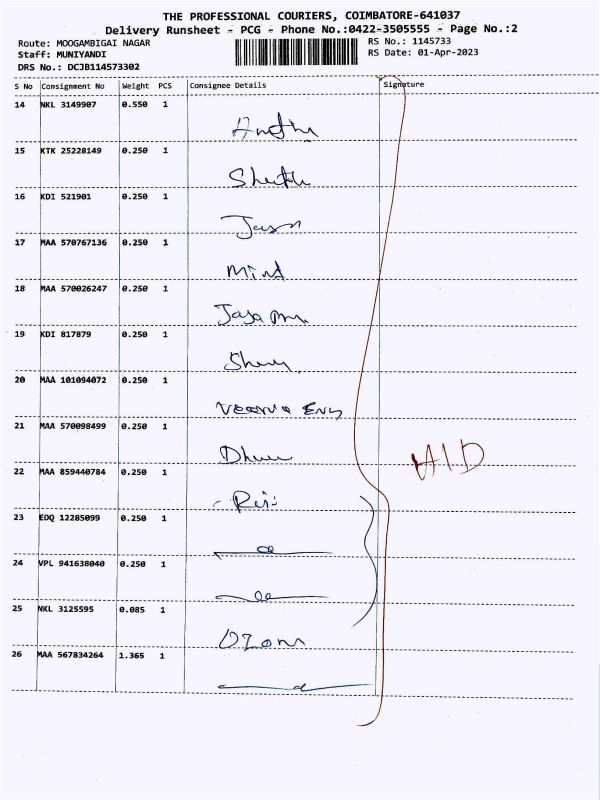 THE PROFESSIONAL COURIERS, COIMBATORE-641037
Delivery Runsheet - PCG - Phone No.:0422-3505555 - Page No.:2
Route: MOOGAMBIGAI NAGAR
Staff: MUNIYANDI
DRS No.: DCJB114573302
RS No.: 1145733
RS Date: 01-Apr-2023
S No Consignment No Weight PCS Consignee Details Signature
14 NKL 3149907 0.550 1
15 KTK 25228149 0.250 1
16 KDI 521901 0.250 1
Jason
17 MAA 570767136 0.250 1
Mind
18 MAA 570026247 0.250 1
19 KDI 817879 0.250 1
20 MAA 101094072 0.250 1
21 MAA 570098499 0.250 1
22 MAA 859440784 0.250 1
23 EDQ 12285099 0.250 1
24 VPL 941638040 0.250 1
25 NKL 3125595 0.085 1
26 MAA 567834264 1.365 1